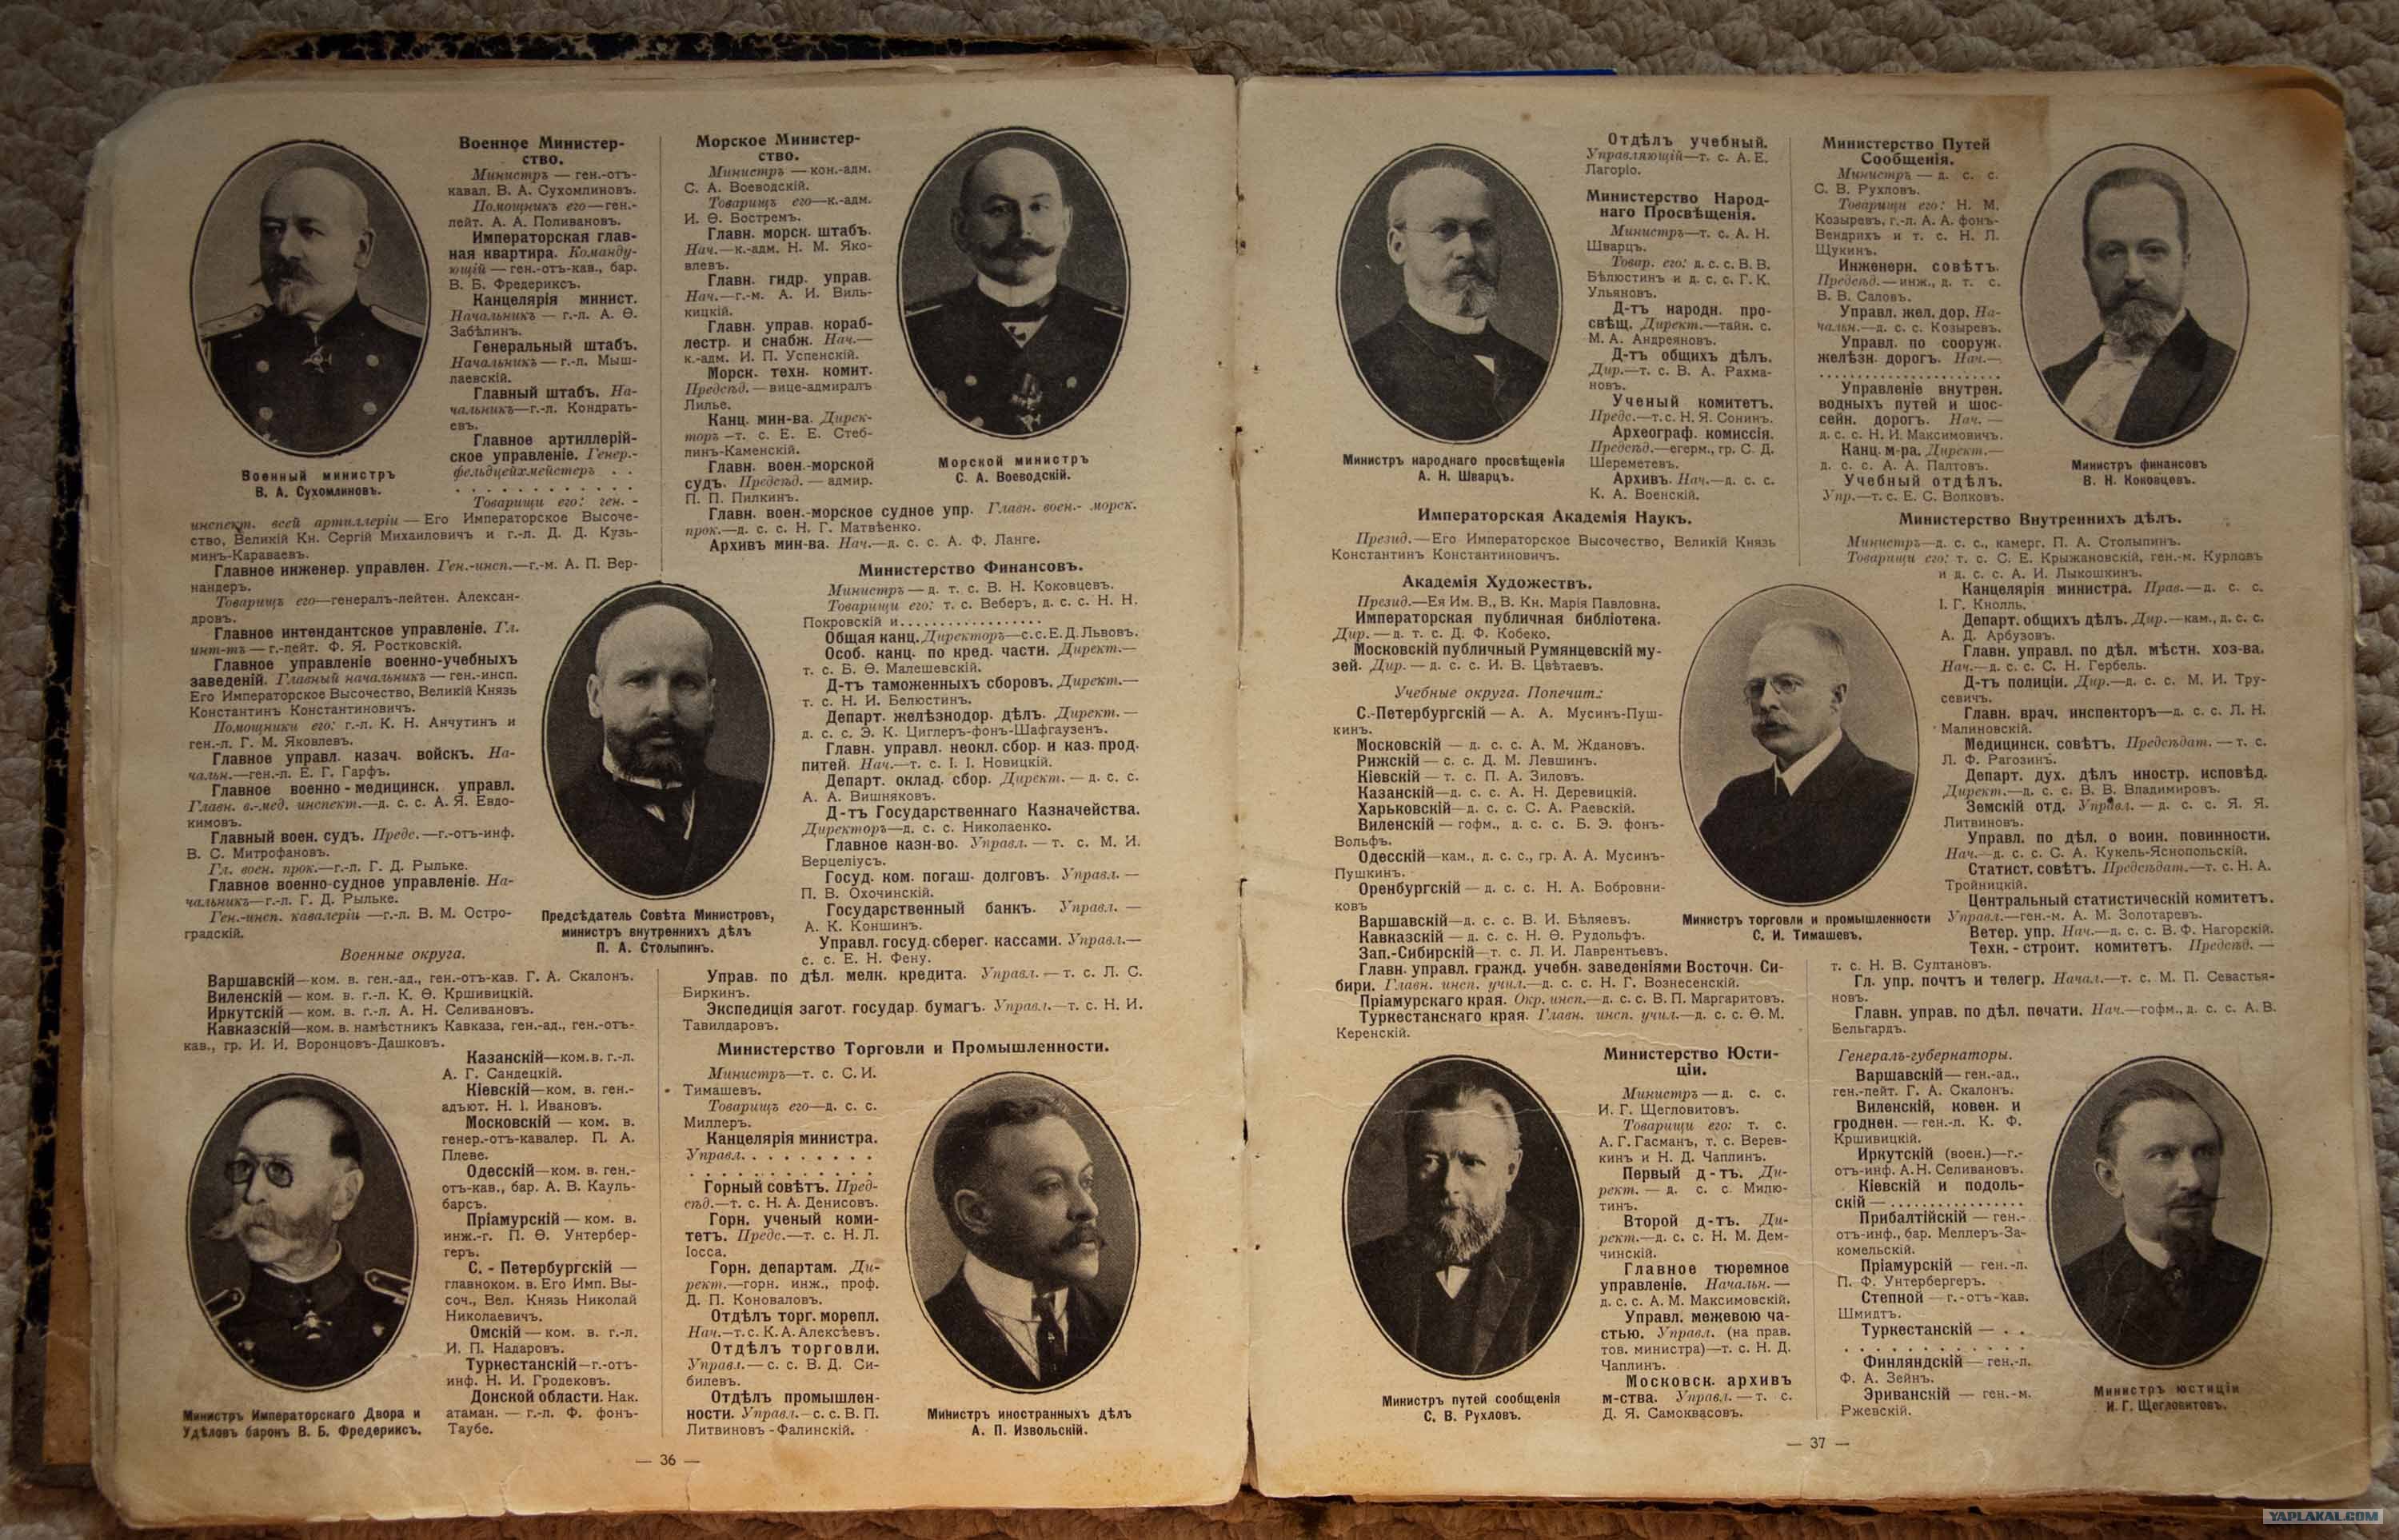 Военное Министер-
ство.
Министръ — ген.-отъ-
кавал. В. А. Сухомлиновъ.
Помощникъ его — ген.-
лейт. А. А. Поливановъ.
Императорская глав-
ная квартира. Команду-
ющій — ген.-отъ-кав., бар.
В. Б. Фредериксъ.
Канцелярія минист.
Начальникъ — г.-л. А. Ѳ.
Забѣлинъ.
Генеральный штабъ.
Начальникъ — г.-л. Мыш-
лаевскій.
Главный штабъ. На-
чальникъ—г.-л. Кондрать-
евъ.
Главное артиллерій-
ское управленіе. Генер.-
фельдцейхмейстеръ . .
. . . . . . . . . . . .
Товарищи его: ген. -
инспект. всей артиллеріи — Его Императорское Высоче-
ство, Великій Кн. Сергій Михаиловичъ и г.-л. Д. Д. Кузь-
минъ-Караваевъ.
Главное инженер. управлен. Ген.-инсп.—г.-м. А. П. Вер-
нандеръ.
Товарищъ его—генералъ-лейтен. Алексан-
дровъ.
Главное интендантское управленіе. Гл.
инт-тъ — г.-лейт. Ф. Я. Ростковскій.
Главное управленіе военно-учебныхъ
заведеній. Главный начальникъ — ген.-инсп.
Его Императорское Высочество, Великій Князь
Константинъ Константиновичъ.
Помощники его: г.-л. К. Н. Анчутинъ и
ген.-л. Г. М. Яковлевъ.
Главное управл. казач. войскъ. На-
чальн.—ген.-л. Е. Г. Гарфъ.
Главное военно - медицинск. управл.
Главн. в.-мед. инспект.—д. с. с. А. Я. Евдо-
кимовъ.
Главный воен. судъ. Предс. —г.-отъ-инф.
В. С. Митрофановъ.
Гл. воен. прок.—г.-л. Г. Д. Рыльке.
Главное военно-судное управленіе. На-
чальникъ—г.-л. Г. Д. Рыльке.
Ген.-инсп. кавалеріи —г.-л. В. М. Остро-
градскій.
Военные округа.
Варшавскій—ком. в. ген.-ад., ген.-отъ-кав. Г. А. Скалонъ.
Виленскій — ком. в. г.-л. К. Ѳ. Кршивицкій.
Иркутскій — ком. в. г.-л. А. Н. Селивановъ.
Кавказскій—ком. в. намѣстникъ Кавказа, ген.-ад., ген.-отъ-
кав., гр. И. И. Воронцовъ-Дашковъ.
Казанскій—ком. в. г.-л.
А. Г. Сандецкій.
Кіевскій—ком. в. ген.-
адъют. Н. І. Ивановъ.
Московскій — ком. в.
генер.-отъ-кавалер. П. А.
Плеве.
Одесскій—ком. в. ген.-
отъ-кав., бар. А. В. Кауль-
барсъ.
Пріамурскій — ком. в.
инж.-г. П. Ѳ. Унтербер-
геръ.
С. - Петербургскій —
главноком. в. Его Имп. Вы-
соч., Вел. Князь Николай
Николаевичъ.
Омскій — ком. в. г.-л.
И. П. Надаровъ.
Туркестанскій—г.-отъ-
инф. Н. И. Гродековъ.
Донской области. Нак.
атаман. — г.-л. Ф. фонъ-
Таубе.
Военный министръ
В. А. Сухомлиновъ.
Предсѣдатель Совѣта Министровъ,
министръ внутреннихъ дѣлъ
П. А. Столыпинъ.
Министръ Императорскаго Двора и
Удѣловъ баронъ В. Б. Фредериксъ.
Морское Министер-
ство.
Министръ — кон.-адм.
С. А. Воеводскій.
Товарищъ его—к.-адм.
И. Ѳ. Бостремъ.
Главн. морск. штабъ.
Нач.—к.-адм. Н. М. Яко-
влевъ.
Главн. гидр. управ.
Нач.—г.-м. А. И. Виль-
кицкій.
Главн. управ. кораб-
лестр. и снабж. Нач.—
к.-адм. И. П. Успенскій.
Морск. техн. комит.
Предсѣд. — вице-адмиралъ
Лилье.
Канц. мин-ва. Дирек-
торъ —т. с. Е. Е. Стеб-
линъ-Каменскій.
Главн. воен.-морской
судъ. Предсѣд. — адмир.
П. П. Пилкинъ.
Главн. воен.-морское судное упр. Главн. воен.- морск.
прок.—д. с. с. Н. Г. Матвѣенко.
Архивъ мин-ва. Нач.—д. с. с. А. Ф. Ланге.
Морской министръ
С. А. Воеводскій.
Министерство Финансовъ.
Министръ — д. т. с. В. Н. Коковцевъ.
Товарищи его: т. с. Веберъ, д. с. с. Н. Н.
Покровскій и. . . . . . . . . . . . . . . . .
Общая канц. Директоръ—с.с.Е.Д.Львовъ.
Особ. канц. по кред. части. Директ.—
т. с. Б. Ѳ. Малешевскій.
Д-тъ таможенныхъ сборовъ. Директ.—
т. с. Н. И. Белюстинъ.
Департ. желѣзнодор. дѣлъ. Директ. —
д. с. с. Э. К. Циглеръ-фонъ-Шафгаузенъ.
Главн. управл. неокл. сбор. и каз. прод.
питей. Нач.—т. с. І. І. Новицкій.
Департ. оклад. сбор. Директ. — д. с. с.
А. А. Вишняковъ.
Д-тъ Государственнаго Казначейства.
Директоръ—д. с. с. Николаенко.
Главное казн-во. Управл. — т. с. М. И.
Верцеліусъ.
Госуд. ком. погаш. долговъ. Управл. —
П. В. Охочинскій.
Государственный банкъ. Управл. —
А. К. Коншинъ.
Управл. госуд. сберег. кассами. Управл.—
с. с. Е. Н. Фену.
Управ. по дѣл. мелк. кредита. Управл. — т. с. Л. С.
Биркинъ.
Экспедиція загот. государ. бумагъ. Управл.—т. с. Н. И.
Тавилдаровъ.
Министерство Торговли и Промышленности.
Министръ—т. с. С. И.
Тимашевъ.
Товарищъ его—д. с. с.
Миллеръ.
Канцелярія министра.
Управл. . . . . . . . .
. . . . . . . . . . . .
Горный совѣтъ. Пред-
сѣд.—т. с. Н. А. Денисовъ.
Горн. ученый коми-
тетъ. Предс.—т. с. Н. Л.
Іосса.
Горн. департам. Ди-
рект.—горн. инж., проф.
Д. П. Коноваловъ.
Отдѣлъ торг. морепл.
Нач.—т. с. К. А. Алексѣевъ.
Отдѣлъ торговли.
Управл.— с. с. В. Д. Си-
билевъ.
Отдѣлъ промышлен-
ности. Управл.—с. с. В. П.
Литвиновъ - Фалинскій.
Министръ иностранныхъ дѣлъ
А. П. Извольскій.
— 36 —
Министръ народнаго просвѣщенія
А. Н. Шварцъ.
Отдѣлъ учебный.
Управляющій—т. с. А. Е.
Лагоріо.
Министерство Народ-
наго Просвѣщенія.
Министръ—т. с. А. Н.
Шварцъ.
Товар. его: д. с. с. В. В.
Бѣлюстинъ и д. с. с. Г. К.
Ульяновъ.
Д-тъ народн. про-
свѣщ. Директ.—тайн. с.
М. А. Андреяновъ.
Д-тъ общихъ дѣлъ.
Дир.—т. с. В. А. Рахма-
новъ.
Ученый комитетъ.
Предс.—т. с. Н. Я. Сонинъ.
Археограф. комиссія.
Предсѣд.—егерм., гр. С. Д.
Шереметевъ.
Архивъ. Нач.—д. с. с.
К. А. Военскій.
Императорская Академія Наукъ.
Презид.—Его Императорское Высочество, Великій Князь
Константинъ Константиновичъ.
Академія Художествъ.
Презид.—Ея Им. В., В. Кн. Марія Павловна.
Императорская публичная библіотека.
Дир. — д. т. с. Д. Ф. Кобеко.
Московскій публичный Румянцевскій му-
зей. Дир. — д. с. с. И. В. Цвѣтаевъ.
Учебные округа. Попечит.:
С.-Петербургскій — А. А. Мусинъ-Пуш-
кинъ.
Московскій — д. с. с. А. М. Ждановъ.
Рижскій — с. с. Д. М. Левшинъ.
Кіевскій — т. с. П. А. Зиловъ.
Казанскій—д. с. с. А. Н. Деревицкій.
Харьковскій—д. с. с. С. А. Раевскій.
Виленскій — гофм., д. с. с. Б. Э. фонъ-
Вольфъ.
Одесскій—кам., д. с. с., гр. А. А. Мусинъ-
Пушкинъ.
Оренбургскій — д. с. с. Н. А. Бобровни-
ковъ
Варшавскій—д. с. с. В. И. Бѣляевъ.
Кавказскій — д. с. с. Н. Ѳ. Рудольфъ.
Зап.-Сибирскій—т. с. Л. И. Лаврентьевъ.
Главн. управл. гражд. учебн. заведеніями Восточн. Си-
бири. Главн. инсп. учил.—д. с. с. Н. Г. Вознесенскій.
Пріамурскаго края. Окр. инсп.—д. с. с. В. П. Маргаритовъ.
Туркестанскаго края. Главн. инсп. учил.—д. с. с. Ѳ. М.
Керенскій.
Министръ торговли и промышленности
С. И. Тимашевъ.
Министръ путей сообщенія
С. В. Рухловъ.
Министерство Юсти-
ціи.
Министръ — д. с. с.
И. Г. Щегловитовъ.
Товарищи его: т. с.
А. Г. Гасманъ, т. с. Верев-
кинъ и Н. Д. Чаплинъ.
Первый д-тъ. Ди-
рект. — д. с. с. Милю-
тинъ.
Второй д-тъ. Ди-
рект.—д. с. с. Н. М. Дем-
чинскій.
Главное тюремное
управленіе. Начальн. —
д. с. с. А. М. Максимовскій.
Управл. межевою ча-
стью. Управл. (на прав.
тов. министра)—т. с. Н. Д.
Чаплинъ.
Московск. архивъ
м-ства. Управл. — т. с.
Д. Я. Самоквасовъ.
Министерство Путей
Сообщенія.
Министръ — д. с. с.
С. В. Рухловъ.
Товарищи его: Н. М.
Козыревъ, г.-л. А. А. фонъ-
Вендрихъ и т. с. Н. Л.
Щукинъ.
Инженерн. совѣтъ.
Предсѣд. — инж., д. т. с.
В. В. Саловъ.
Управл. жел. дор. На-
чальн.—д. с. с. Козыревъ.
Управл. по сооруж.
желѣзн. дорогъ. Нач.—.
. . . . . . . . . . . . . . . . . . .
Управленіе внутрен.
водныхъ путей и шос-
сейн. дорогъ. Нач. —
д. с. с. Н. И. Максимовичъ.
Канц. м-ра. Директ.—
д. с. с. А. А. Палтовъ.
Учебный отдѣлъ.
Упр.—т. с. Е. С. Волковъ.
Министръ финансовъ
В. Н. Коковцевъ.
Министерство Внутреннихъ дѣлъ.
Министръ—д. с. с., камерг. П. А. Столыпинъ.
Товарищи его: т. с. С. Е. Крыжановскій, ген.-м. Курловъ
и д. с. с. А. И. Лыкошкинъ.
Канцелярія министра. Прав.—д. с. с.
І. Г. Кнолль.
Департ. общихъ дѣлъ. Дир.—кам., д. с. с.
А. Д. Арбузовъ.
Главн. управл. по дѣл. мѣстн. хоз-ва.
Нач.—д. с. с. С. Н. Гербель.
Д-тъ полиціи. Дир.—д. с. с. М. И. Тру-
севичъ.
Главн. врач. инспекторъ—д. с. с. Л. Н.
Малиновскій.
Медицинск. совѣтъ. Предсѣдат. — т. с.
Л. Ф. Рагозинъ.
Департ. дух. дѣлъ иностр. исповѣд.
Директ.—д. с. с. В. В. Владимировъ.
Земскій отд. Управл. — д. с. с. Я. Я.
Литвиновъ.
Управл. по дѣл. о воин. повинности.
Нач.—д. с. с. С. А. Кукель-Яснопольскій.
Статист. совѣтъ. Предсѣдат.—т. с. Н. А.
Тройницкій.
Центральный статистическій комитетъ.
Управл.—ген.-м. А. М. Золотаревъ.
Ветер. упр. Нач.—д. с. с. В. Ф. Нагорскій.
Техн. - строит. комитетъ. Предсѣд. —
т. с. Н. В. Султановъ.
Гл. упр. почтъ и телегр. Начал.—т. с. М. П. Севастья-
новъ.
Главн. управ. по дѣл. печати. Нач.—гофм., д. с. с. А. В.
Бельгардъ.
Генералъ-губернаторы.
Варшавскій — ген.-ад.,
ген.-лейт. Г. А. Скалонъ.
Виленскій, ковен. и
гроднен. — ген.-л. К. Ф.
Кршивицкій.
Иркутскій (воен.)—г.-
отъ-инф. А. Н. Селивановъ.
Кіевскій и подоль-
скій — . . . . . . . . . . . . . . . .
Прибалтійскій — ген.-
отъ-инф., бар. Меллеръ-За-
комельскій.
Пріамурскій — ген.-л.
П. Ф. Унтербергеръ.
Степной — г.-отъ-кав.
Шмидтъ.
Туркестанскій — . .
. . . . . . . . . . . .
Финляндскій — ген.-л.
Ф. А. Зейнъ.
Эриванскій — ген.-м.
Ржевскій.
Министръ юстиціи
И. Г. Щегловитовъ.
— 37 —
YAPLAKAL.COM